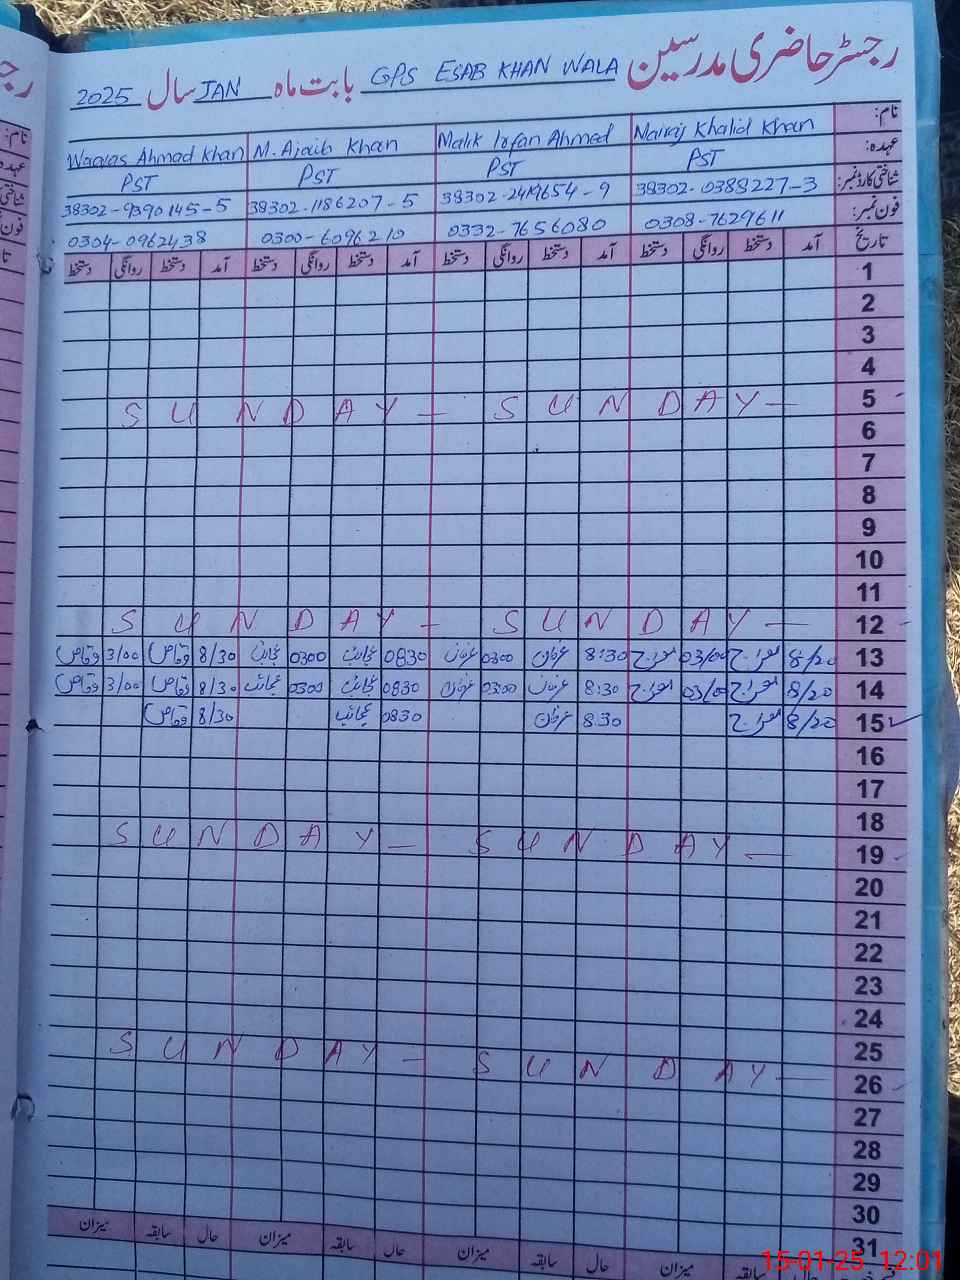 رجسٹر حاضری مدرسین GPS ESAB KHAN WALA بابت ماہ JAN سال 2025
نام: Mairaj Khalid Khan Malik Irfan Ahmed M. Ajaib Khan Waqas Ahmad Khan
عہدہ: PST PST PST PST
شناختی کارڈ نمبر: 38302-0388227-3 38302-2419654-9 38302-1186207-5 38302-9390145-5
فون نمبر: 0308-7629611 0332-7656080 0300-6096210 0304-0962438
تاریخ آمد دستخط روانگی دستخط آمد دستخط روانگی دستخط آمد دستخط روانگی دستخط آمد دستخط روانگی دستخط
1
2
3
4
5 SUNDAY - SUNDAY -
6
7
8
9
10
11
12 SUNDAY - SUNDAY -
13 8/20 معراج 03/00 معراج 8:30 عرفان 0300 عرفان 0830 عجائب 0300 عجائب 8/30 وقاص 3/00 وقاص
14 8/20 معراج 03/00 معراج 8:30 عرفان 03:00 عرفان 0830 عجائب 0300 عجائب 8/30 وقاص 3/00 وقاص
15 8/20 معراج 8:30 عرفان 0830 عجائب 8/30 وقاص
16
17
18
19 SUNDAY - SUNDAY -
20
21
22
23
24
25
26 SUNDAY - SUNDAY -
27
28
29
30
31
حال سابقہ میزان حال سابقہ میزان حال سابقہ میزان
15-01-25 12:01